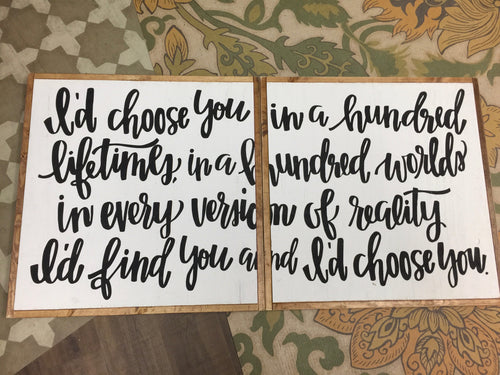 I'd choose you in a hundred
lifetimes, in a hundred worlds
in every version of reality
I'd find you and I'd choose you.